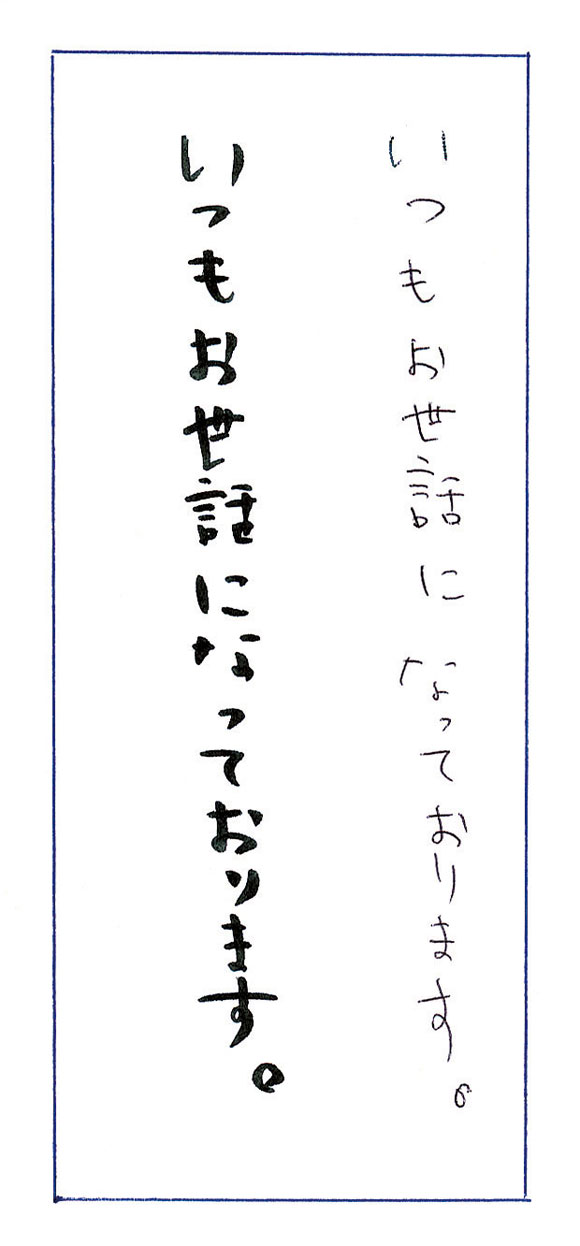 いつもお世話になっております。
いつもお世話になっております。